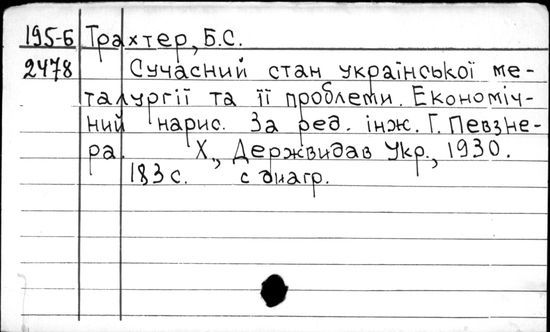 195-Б Трахтер, Б.С.
2478 Сучасний стан української ме-
талургії та її проблеми. Економіч-
ний нарис. За ред. інж. Г. Певзне-
ра. Х., Держвидав Укр., 1930.
183 с. с диагр.